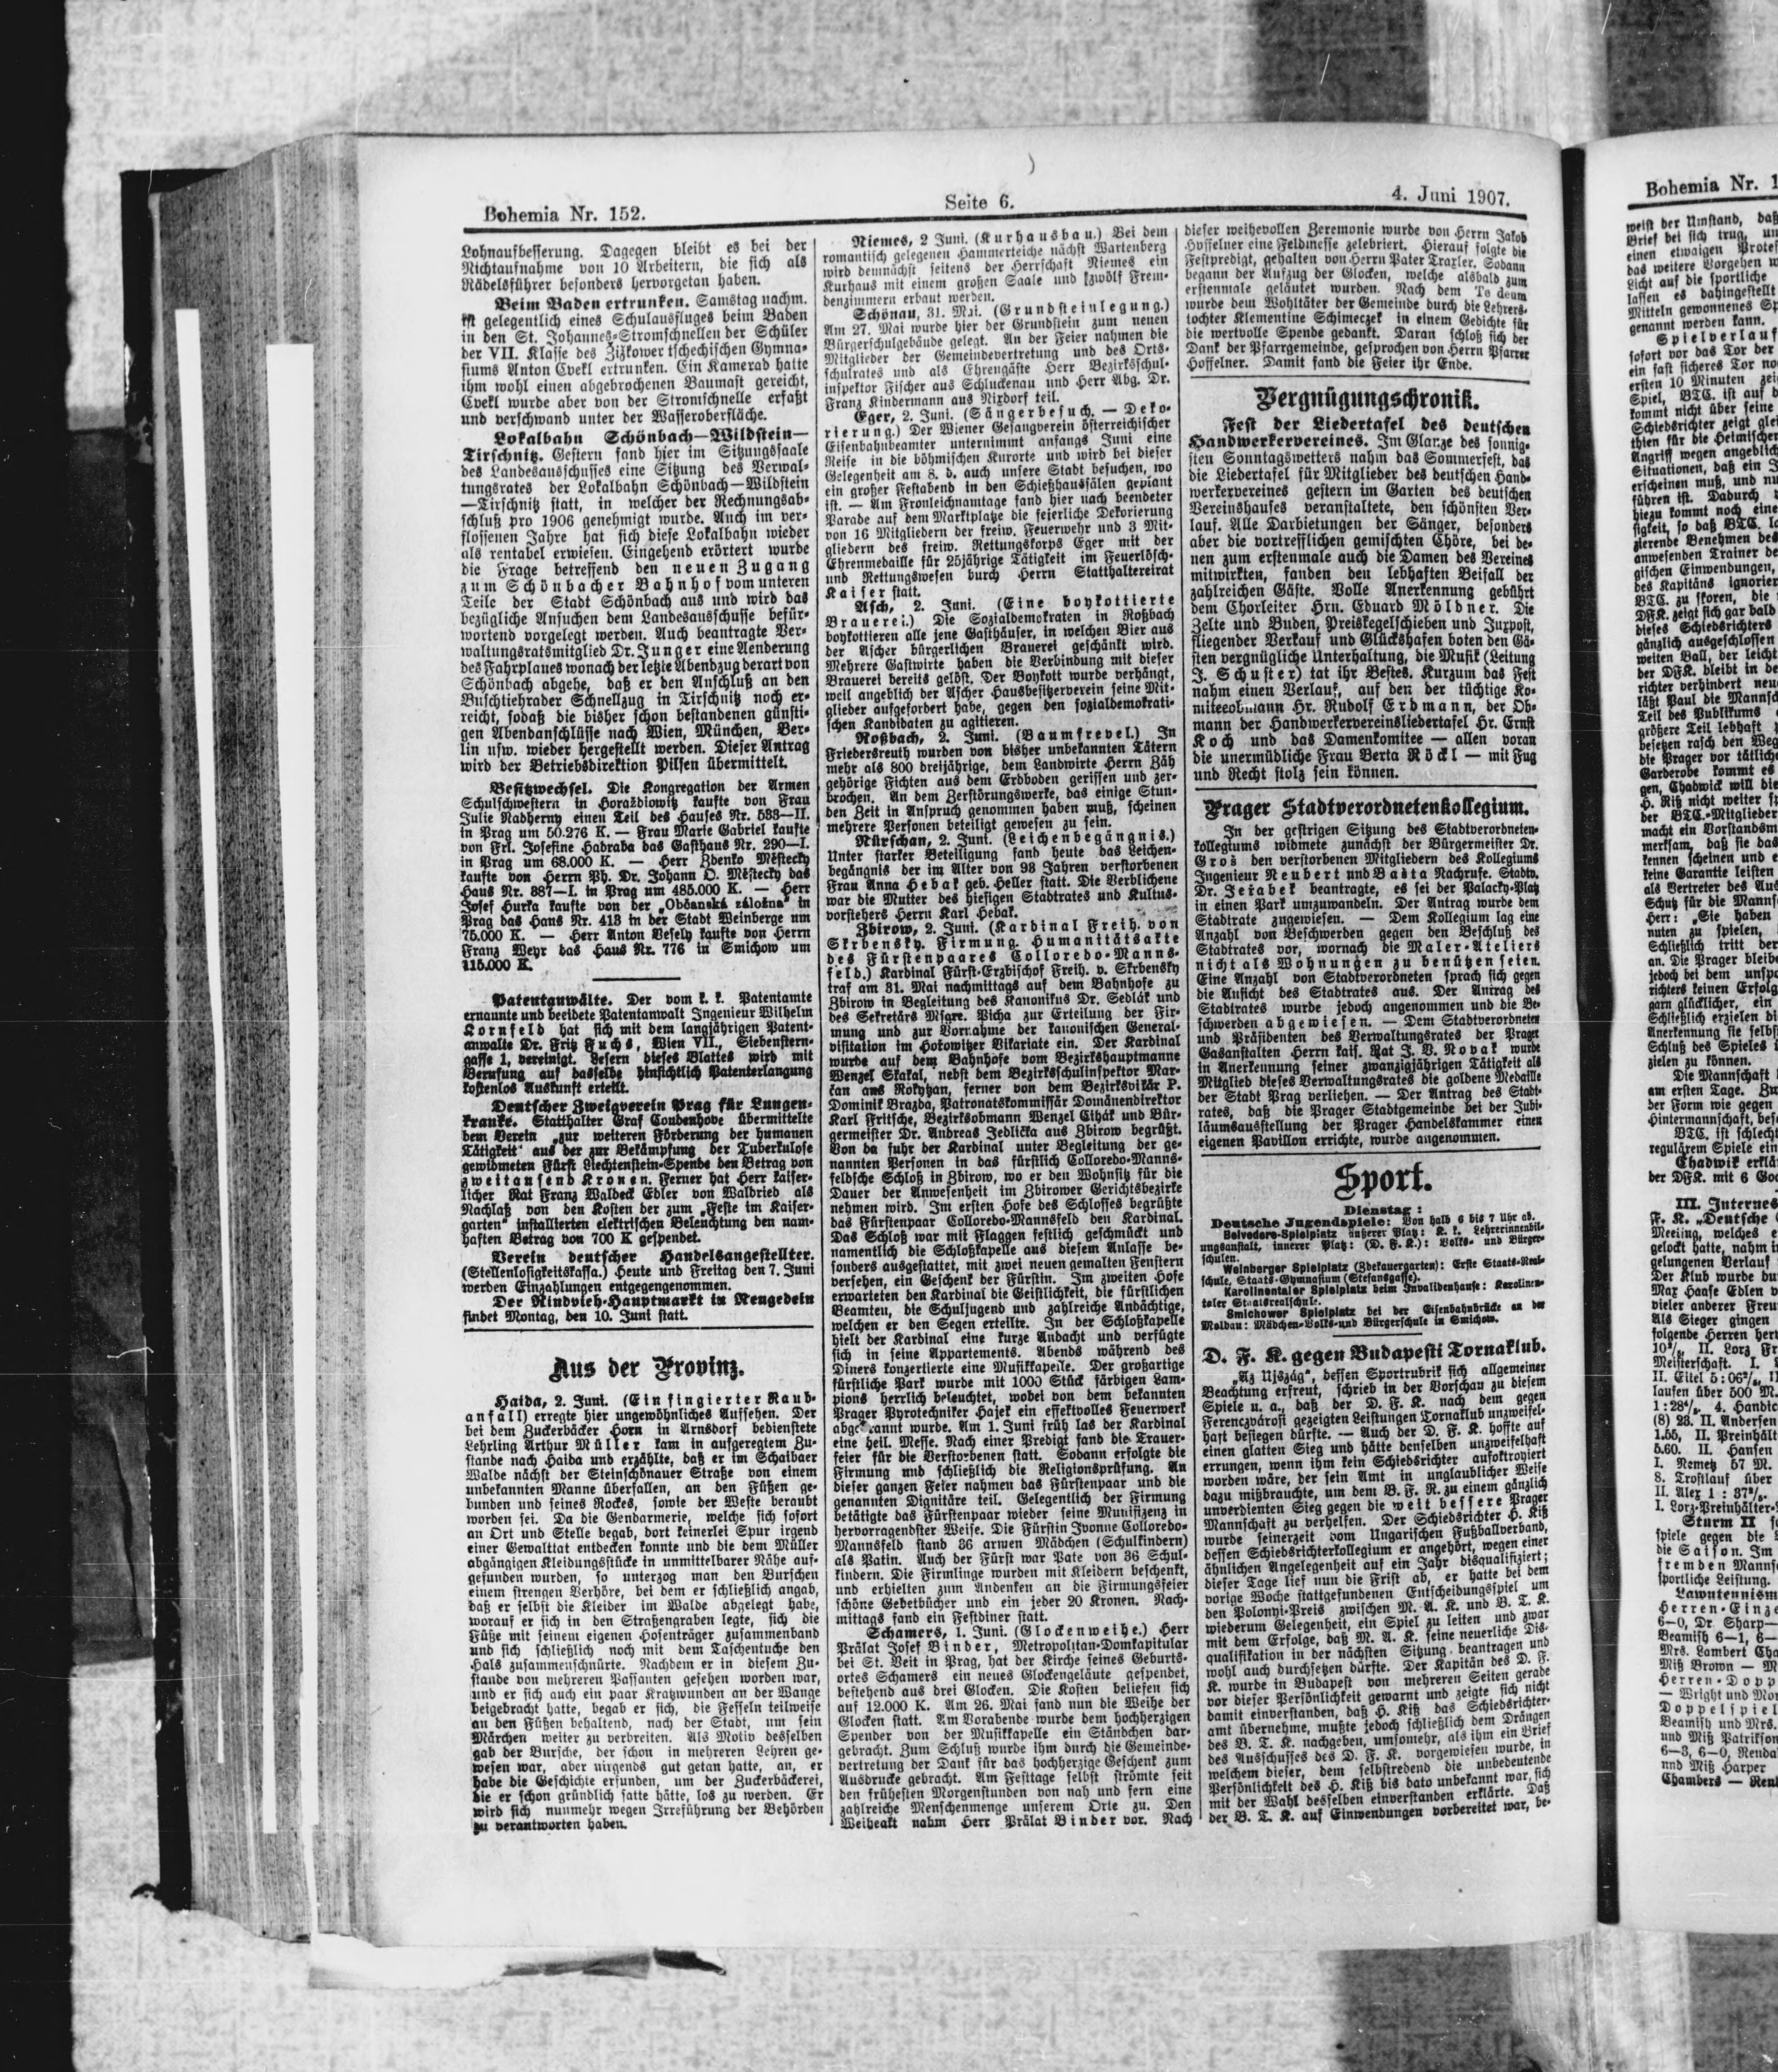 Bohemia Nr. 152.
Seite 6.
4. Juni 1907.
Lohnaufbesserung. Dagegen bleibt es bei der
Nichtaufnahme von 10 Arbeitern, die sich als
Rädelsführer besonders hervorgetan haben.
Beim Baden ertrunken. Samstag nachm.
ist gelegentlich eines Schulausfluges beim Baden
in den St. Johannes-Stromschnellen der Schüler
der VII. Klasse des Zizkower tschechischen Gymna-
siums Anton Cvekl ertrunken. Ein Kamerad hatte
ihm wohl einen abgebrochenen Baumast gereicht,
Cvekl wurde aber von der Stromschnelle erfaßt
und verschwand unter der Wasseroberfläche.
Lokalbahn Schönbach—Wildstein—
Tirschnitz. Gestern fand hier im Sitzungssaale
des Landesausschusses eine Sitzung des Verwal-
tungsrates der Lokalbahn Schönbach—Wildstein
—Tirschnitz statt, in welcher der Rechnungsab-
schluß pro 1906 genehmigt wurde. Auch im ver-
flossenen Jahre hat sich diese Lokalbahn wieder
als rentabel erwiesen. Eingehend erörtert wurde
die Frage betreffend den neuen Zugang
zum Schönbacher Bahnhof vom unteren
Teile der Stadt Schönbach aus und wird das
bezügliche Ansuchen dem Landesausschusse befür-
wortend vorgelegt werden. Auch beantragte Ver-
waltungsratsmitglied Dr. Junger eine Aenderung
des Fahrplanes wonach der letzte Abendzug derart von
Schönbach abgehe, daß er den Anschluß an den
Buschtiehrader Schnellzug in Tirschnitz noch er-
reicht, sodaß die bisher schon bestandenen günsti-
gen Abendanschlüsse nach Wien, München, Ber-
lin usw. wieder hergestellt werden. Dieser Antrag
wird der Betriebsdirektion Pilsen übermittelt.
Besitzwechsel. Die Kongregation der Armen
Schulschwestern in Horažbiowitz kaufte von Frau
Julie Nadherny einen Teil des Hauses Nr. 533—II.
in Prag um 50.276 K. — Frau Marie Gabriel kaufte
von Frl. Josefine Hadraba das Gasthaus Nr. 290—I.
in Prag um 68.000 K. — Herr Zdenko Městecky
kaufte von Herrn Ph. Dr. Johann O. Městecky das
Haus Nr. 887—I. in Prag um 485.000 K. — Herr
Josef Hurka kaufte von der „Občanská záložna“ in
Prag das Haus Nr. 413 in der Stadt Weinberge um
75.000 K. — Herr Anton Vesely kaufte von Herrn
Franz Weyr das Haus Nr. 776 in Smichow um
115.000 K.
Patentanwälte. Der vom k. k. Patentamte
ernannte und beeidete Patentanwalt Ingenieur Wilhelm
Kornfeld hat sich mit dem langjährigen Patent-
anwalte Dr. Fritz Fuchs, Wien VII., Siebenstern-
gasse 1, vereinigt. Lesern dieses Blattes wird mit
Berufung auf dasselbe hinsichtlich Patenterlangung
kostenlos Auskunft erteilt.
Deutscher Zweigverein Prag für Lungen-
kranke. Statthalter Graf Coudenhove übermittelte
dem Verein „zur weiteren Förderung der humanen
Tätigkeit“ aus der zur Bekämpfung der Tuberkulose
gewidmeten Fürst Liechtenstein-Spende den Betrag von
zweitausend Kronen. Ferner hat Herr kaiser-
licher Rat Franz Waldeck Edler von Waldried als
Nachlaß von den Kosten der zum „Feste im Kaiser-
garten“ installierten elektrischen Beleuchtung den nam-
haften Betrag von 700 K gespendet.
Verein deutscher Handelsangestellter.
(Stellenlosigkeitskassa.) Heute und Freitag den 7. Juni
werden Einzahlungen entgegengenommen.
Der Rindvieh-Hauptmarkt in Neugedein
findet Montag, den 10. Juni statt.
Aus der Provinz.
Haida, 2. Juni. (Ein fingierter Raub-
anfall) erregte hier ungewöhnliches Aufsehen. Der
bei dem Zuckerbäcker Horn in Arnsdorf bedienstete
Lehrling Arthur Müller kam in aufgeregtem Zu-
stande nach Haida und erzählte, daß er im Schaibaer
Walde nächst der Steinschönauer Straße von einem
unbekannten Manne überfallen, an den Füßen ge-
bunden und seines Rockes, sowie der Weste beraubt
worden sei. Da die Gendarmerie, welche sich sofort
an Ort und Stelle begab, dort keinerlei Spur irgend
einer Gewalttat entdecken konnte und die dem Müller
abgängigen Kleidungsstücke in unmittelbarer Nähe auf-
gefunden wurden, so unterzog man den Burschen
einem strengen Verhöre, bei dem er schließlich angab,
daß er selbst die Kleider im Walde abgelegt habe,
worauf er sich in den Straßengraben legte, sich die
Füße mit seinem eigenen Hosenträger zusammenband
und sich schließlich noch mit dem Taschentuche den
Hals zusammenschnürte. Nachdem er in diesem Zu-
stande von mehreren Passanten gesehen worden war,
und er sich auch ein paar Kratzwunden an der Wange
beigebracht hatte, begab er sich, die Fesseln teilweise
an den Füßen behaltend, nach der Stadt, um sein
Märchen weiter zu verbreiten. Als Motiv desselben
gab der Bursche, der schon in mehreren Lehren ge-
wesen war, aber nirgends gut getan hatte, an, er
habe die Geschichte erfunden, um der Zuckerbäckerei,
die er schon gründlich satte hätte, los zu werden. Er
wird sich nunmehr wegen Irreführung der Behörden
zu verantworten haben.
Niemes, 2 Juni. (Kurhausbau.) Bei dem
romantisch gelegenen Hammerteiche nächst Wartenberg
wird demnächst seitens der Herrschaft Niemes ein
Kurhaus mit einem großen Saale und zwölf Frem-
denzimmern erbaut werden.
Schönau, 31. Mai. (Grundsteinlegung.)
Am 27. Mai wurde hier der Grundstein zum neuen
Bürgerschulgebäude gelegt. An der Feier nahmen die
Mitglieder der Gemeindevertretung und des Orts-
schulrates und als Ehrengäste Herr Bezirksschul-
inspektor Fischer aus Schluckenau und Herr Abg. Dr.
Franz Kindermann aus Nixdorf teil.
Eger, 2. Juni. (Sängerbesuch. — Deko-
rierung.) Der Wiener Gesangverein österreichischer
Eisenbahnbeamter unternimmt anfangs Juni eine
Reise in die böhmischen Kurorte und wird bei dieser
Gelegenheit am 8. d. auch unsere Stadt besuchen, wo
ein großer Festabend in den Schießhaussälen geplant
ist. — Am Fronleichnamtage fand hier nach beendeter
Parade auf dem Marktplatze die feierliche Dekorierung
von 16 Mitgliedern der freiw. Feuerwehr und 3 Mit-
gliedern des freiw. Rettungskorps Eger mit der
Ehrenmedaille für 25jährige Tätigkeit im Feuerlösch-
und Rettungswesen durch Herrn Statthaltereirat
Kaiser statt.
Asch, 2. Juni. (Eine boykottierte
Brauerei.) Die Sozialdemokraten in Roßbach
boykottieren alle jene Gasthäuser, in welchen Bier aus
der Ascher bürgerlichen Brauerei geschänkt wird.
Mehrere Gastwirte haben die Verbindung mit dieser
Brauerei bereits gelöst. Der Boykott wurde verhängt,
weil angeblich der Ascher Hausbesitzerverein seine Mit-
glieder aufgefordert habe, gegen den sozialdemokrati-
schen Kandidaten zu agitieren.
Roßbach, 2. Juni. (Baumfrevel.) In
Friedersreuth wurden von bisher unbekannten Tätern
mehr als 800 dreijährige, dem Landwirte Herrn Zäh
gehörige Fichten aus dem Erdboden gerissen und zer-
brochen. An dem Zerstörungswerke, das einige Stun-
den Zeit in Anspruch genommen haben muß, scheinen
mehrere Personen beteiligt gewesen zu sein.
Nürschan, 2. Juni. (Leichenbegängnis.)
Unter starker Beteiligung fand heute das Leichen-
begängnis der im Alter von 98 Jahren verstorbenen
Frau Anna Hebak geb. Heller statt. Die Verblichene
war die Mutter des hiesigen Stadtrates und Kultus-
vorstehers Herrn Karl Hebak.
Zbirow, 2. Juni. (Kardinal Freih. von
Skrbensky. Firmung. Humanitätsakte
des Fürstenpaares Colloredo-Manns-
feld.) Kardinal Fürst-Erzbischof Freih. v. Skrbensky
traf am 31. Mai nachmittags auf dem Bahnhofe zu
Zbirow in Begleitung des Kanonikus Dr. Sedlák und
des Sekretärs Msgre. Picha zur Erteilung der Fir-
mung und zur Vornahme der kanonischen General-
visitation im Hokowitzer Vikariate ein. Der Kardinal
wurde auf dem Bahnhofe vom Bezirkshauptmanne
Wenzel Skakal, nebst dem Bezirksschulinspektor Mar-
čan aus Rokytzan, ferner von dem Bezirksvikär P.
Dominik Brazda, Patronatskommissär Domänendirektor
Karl Fritsche, Bezirksobmann Wenzel Cihák und Bür-
germeister Dr. Andreas Jedlicka aus Zbirow begrüßt.
Von da fuhr der Kardinal unter Begleitung der ge-
nannten Personen in das fürstlich Colloredo-Manns-
feldsche Schloß in Zbirow, wo er den Wohnsitz für die
Dauer der Anwesenheit im Zbirower Gerichtsbezirke
nehmen wird. Im ersten Hofe des Schlosses begrüßte
das Fürstenpaar Colloredo-Mannsfeld den Kardinal.
Das Schloß war mit Flaggen festlich geschmückt und
namentlich die Schloßkapelle aus diesem Anlasse be-
sonders ausgestattet, mit zwei neuen gemalten Fenstern
versehen, ein Geschenk der Fürstin. Im zweiten Hofe
erwarteten den Kardinal die Geistlichkeit, die fürstlichen
Beamten, die Schuljugend und zahlreiche Andächtige,
welchen er den Segen erteilte. In der Schloßkapelle
hielt der Kardinal eine kurze Andacht und verfügte
sich in seine Appartements. Abends während des
Diners konzertierte eine Musikkapelle. Der großartige
fürstliche Park wurde mit 1000 Stück färbigen Lam-
pions herrlich beleuchtet, wobei von dem bekannten
Prager Pyrotechniker Hajek ein effektvolles Feuerwerk
abgebrannt wurde. Am 1. Juni früh las der Kardinal
eine heil. Messe. Nach einer Predigt fand die Trauer-
feier für die Verstorbenen statt. Sodann erfolgte die
Firmung und schließlich die Religionsprüfung. An
dieser ganzen Feier nahmen das Fürstenpaar und die
genannten Dignitäre teil. Gelegentlich der Firmung
betätigte das Fürstenpaar wieder seine Munifizenz in
hervorragendster Weise. Die Fürstin Yvonne Colloredo-
Mannsfeld stand 36 armen Mädchen (Schulkindern)
als Patin. Auch der Fürst war Pate von 36 Schul-
kindern. Die Firmlinge wurden mit Kleidern beschenkt,
und erhielten zum Andenken an die Firmungsfeier
schöne Gebetbücher und ein jeder 20 Kronen. Nach-
mittags fand ein Festdiner statt.
Schamers, 1. Juni. (Glockenweihe.) Herr
Prälat Josef Binder, Metropolitan-Domkapitular
bei St. Veit in Prag, hat der Kirche seines Geburts-
ortes Schamers ein neues Glockengeläute gespendet,
bestehend aus drei Glocken. Die Kosten beliefen sich
auf 12.000 K. Am 26. Mai fand nun die Weihe der
Glocken statt. Am Vorabende wurde dem hochherzigen
Spender von der Musikkapelle ein Ständchen dar-
gebracht. Zum Schluß wurde ihm durch die Gemeinde-
vertretung der Dank für das hochherzige Geschenk zum
Ausdrucke gebracht. Am Festtage selbst strömte seit
den frühesten Morgenstunden von nah und fern eine
zahlreiche Menschenmenge unserem Orte zu. Den
Weiheakt nahm Herr Prälat Binder vor. Nach
dieser weihevollen Zeremonie wurde von Herrn Jakob
Hoffelner eine Feldmesse zelebriert. Hierauf folgte die
Festpredigt, gehalten von Herrn Pater Traxler. Sodann
begann der Aufzug der Glocken, welche alsbald zum
erstenmale geläutet wurden. Nach dem Te deum
wurde dem Wohltäter der Gemeinde durch die Lehrers-
tochter Klementine Schimeczek in einem Gedichte für
die wertvolle Spende gedankt. Daran schloß sich der
Dank der Pfarrgemeinde, gesprochen von Herrn Pfarrer
Hoffelner. Damit fand die Feier ihr Ende.
Vergnügungschronik.
Fest der Liedertafel des deutschen
Handwerkervereines. Im Glanze des sonnig-
sten Sonntagswetters nahm das Sommerfest, das
die Liedertafel für Mitglieder des deutschen Hand-
werkervereines gestern im Garten des deutschen
Vereinshauses veranstaltete, den schönsten Ver-
lauf. Alle Darbietungen der Sänger, besonders
aber die vortrefflichen gemischten Chöre, bei de-
nen zum erstenmale auch die Damen des Vereines
mitwirkten, fanden den lebhaften Beifall der
zahlreichen Gäste. Volle Anerkennung gebührt
dem Chorleiter Hrn. Eduard Möldner. Die
Zelte und Buden, Preiskegelschieben und Juxpost,
fliegender Verkauf und Glückshafen boten den Gä-
sten vergnügliche Unterhaltung, die Musik (Leitung
J. Schuster) tat ihr Bestes. Kurzum das Fest
nahm einen Verlauf, auf den der tüchtige Ko-
miteeobmann Hr. Rudolf Erdmann, der Ob-
mann der Handwerkervereinsliedertafel Hr. Ernst
Koch und das Damenkomitee — allen voran
die unermüdliche Frau Berta Röckl — mit Fug
und Recht stolz sein können.
Prager Stadtverordnetenkollegium.
In der gestrigen Sitzung des Stadtverordneten-
kollegiums widmete zunächst der Bürgermeister Dr.
Groš den verstorbenen Mitgliedern des Kollegiums
Ingenieur Neubert und Bašta Nachrufe. Stadtv.
Dr. Jeřabek beantragte, es sei der Palacky-Platz
in einen Park umzuwandeln. Der Antrag wurde dem
Stadtrate zugewiesen. — Dem Kollegium lag eine
Anzahl von Beschwerden gegen den Beschluß des
Stadtrates vor, wornach die Maler-Ateliers
nicht als Wohnungen zu benützen seien.
Eine Anzahl von Stadtverordneten sprach sich gegen
die Ansicht des Stadtrates aus. Der Antrag des
Stadtrates wurde jedoch angenommen und die Be-
schwerden abgewiesen. — Dem Stadtverordneten
und Präsidenten des Verwaltungsrates der Prager
Gasanstalten Herrn kais. Rat J. V. Novak wurde
in Anerkennung seiner zwanzigjährigen Tätigkeit als
Mitglied dieses Verwaltungsrates die goldene Medaille
der Stadt Prag verliehen. — Der Antrag des Stadt-
rates, daß die Prager Stadtgemeinde bei der Jubi-
läumsausstellung der Prager Handelskammer einen
eigenen Pavillon errichte, wurde angenommen.
Sport.
Dienstag:
Deutsche Jugendspiele: Von halb 6 bis 7 Uhr ab.
Belvedere-Spielplatz äußerer Platz: K. k. Lehrerinnenbil-
dungsanstalt, innerer Platz: (D. F. K.): Volks- und Bürger-
schulen.
Weinberger Spielplatz (Zdekauergarten): Erste Staats-Real-
schule, Staats-Gymnasium (Stefansgasse).
Karolinentaler Spielplatz beim Invalidenhause: Karolinen-
taler Staatsrealschule.
Smichower Spielplatz bei der Eisenbahnbrücke an der
Moldau: Mädchen-Volks-und Bürgerschule in Smichow.
D. F. K. gegen Budapesti Tornaklub.
„Az Ujszág“, dessen Sportrubrik sich allgemeiner
Beachtung erfreut, schrieb in der Vorschau zu diesem
Spiele u. a., daß der D. F. K. nach dem gegen
Ferenczvárosi gezeigten Leistungen Tornaklub unzweifel-
haft besiegen dürfte. — Auch der D. F. K. hoffte auf
einen glatten Sieg und hätte denselben unzweifelhaft
errungen, wenn ihm kein Schiedsrichter aufoktroyiert
worden wäre, der sein Amt in unglaublicher Weise
dazu mißbrauchte, um dem B. F. K. zu einem gänzlich
unverdienten Sieg gegen die weit bessere Prager
Mannschaft zu verhelfen. Der Schiedsrichter H. Kiß
wurde seinerzeit vom Ungarischen Fußballverband,
dessen Schiedsrichterkollegium er angehört, wegen einer
ähnlichen Angelegenheit auf ein Jahr disqualifiziert;
dieser Tage lief nun die Frist ab, er hatte bei dem
vorige Woche stattgefundenen Entscheidungsspiel um
den Polonyi-Preis zwischen M. A. K. und B. T. K.
wiederum Gelegenheit, ein Spiel zu leiten und zwar
mit dem Erfolge, daß M. A. K. seine neuerliche Dis-
qualifikation in der nächsten Sitzung beantragen und
wohl auch durchsetzen dürfte. Der Kapitän des D. F.
K. wurde in Budapest von mehreren Seiten gerade
vor dieser Persönlichkeit gewarnt und zeigte sich nicht
damit einverstanden, daß H. Kiß das Schiedsrichter-
amt übernehme, mußte jedoch schließlich dem Drängen
des B. T. K. nachgeben, umsomehr, als ihm ein Brief
des Ausschusses des D. F. K. vorgewiesen wurde, in
welchem dieser, dem selbstredend die unbedeutende
Persönlichkeit des H. Kiß bis dato unbekannt war, sich
mit der Wahl desselben einverstanden erklärte. Daß
der B. T. K. auf Einwendungen vorbereitet war, be-
Bohemia Nr. 1
weist der Umstand, daß
Brief bei sich trug, um
einen etwaigen Protest
das weitere Vorgehen
Licht auf die sportliche
lassen es dahingestellt
Mitteln gewonnenes Sp
genannt werden kann.
Spielverlauf
sofort vor das Tor der
ein fast sicheres Tor no
ersten 10 Minuten zei
Spiel, BTC. ist auf d
kommt nicht über seine
Schiedsrichter zeigt glei
thien für die Heimischen
Angriff wegen angeblich
Situationen, daß ein J
erscheinen muß, und nu
führen ist. Dadurch
hiezu kommt noch eine
sigkeit, so daß BTC. la
zierende Benehmen des
anwesenden Trainer de
gischen Einwendungen,
des Kapitäns ignorier
BTC. zu skoren, die
DFK. zeigt sich gar bald
dieses Schiedsrichters
gänzlich ausgeschlossen
weiten Ball, der leicht
der DFK. bleibt in de
richter verhindert neu
läßt Paul die Mannsch
Teil des Publikums
größere Teil lebhaft
besetzen rasch den Weg
die Prager vor tätliche
Garderobe kommt es
gen, Chadwick will die
H. Kiß nicht weiter sp
der BTC.-Mitglieder
macht ein Vorstandsm
merksam, daß sie das
kennen scheinen und e
keine Garantie leisten
als Vertreter des Aus
Schutz für die Manns
Herr: „Sie haben
nuten zu spielen,
Schließlich tritt der
an. Die Prager bleibe
jedoch bei dem unspo
richters keinen Erfolg
garn glücklicher, ein
Schließlich erzielen di
Anerkennung sie selbs
Schluß des Spieles i
zielen zu können.
Die Mannschaft
am ersten Tage. Zw
der Form wie gegen
Hintermannschaft, bes
BTC. ist schlecht
regulärem Spiele ein
Chadwik erklä
der DFK. mit 6 Goa
III. Internes
F. K. „Deutsche
Meeting, welches e
gelockt hatte, nahm in
gelungenen Verlauf
Der Klub wurde du
Max Haase Edlen v
vieler anderer Freu
Als Sieger gingen
folgende Herren her
II. Lorz Fr
Meisterschaft. I.
II. Eitel
laufen über 500 M.
4. Handic
(8) 23. II. Andersen
1.55, II. Preinhält
5.60. II. Hansen
I. Nemetz 57 M.
8. Trostlauf über
II. Alex
I. Lorz-Preinhälter-
Sturm II
spiele gegen die
die Saison. Im
fremden Manns
sportliche Leistung.
Lawntennism
Herren-Einze
6—0, Dr. Sharp—
Beamish 6—1, 6—
Mrs. Lambert Cha
Miß Brown — M
Herren-Dopp
— Wright und Mor
Doppelspiel
Beamish und Mrs.
und Miß Patrikson
6—3, 6—0, Renda
und Miß Harper
Chambers — Renl